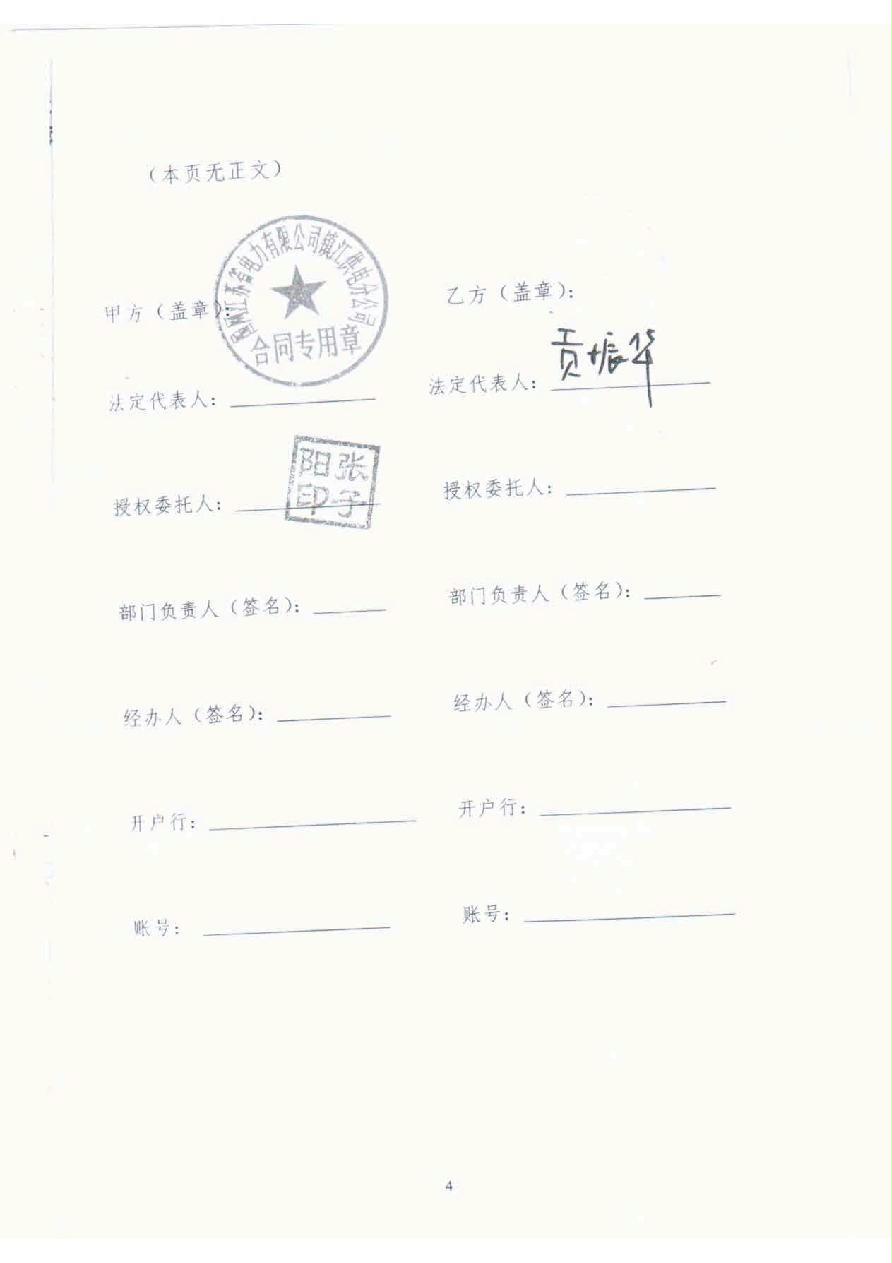 （本页无正文）
国网江苏省电力有限公司镇江供电分公司
合同专用章
甲方（盖章）：
乙方（盖章）：
法定代表人：
法定代表人：贡振华
张子
阳印
授权委托人：
授权委托人：
部门负责人（签名）：
部门负责人（签名）：
经办人（签名）：
经办人（签名）：
开户行：
开户行：
账号：
账号：
4